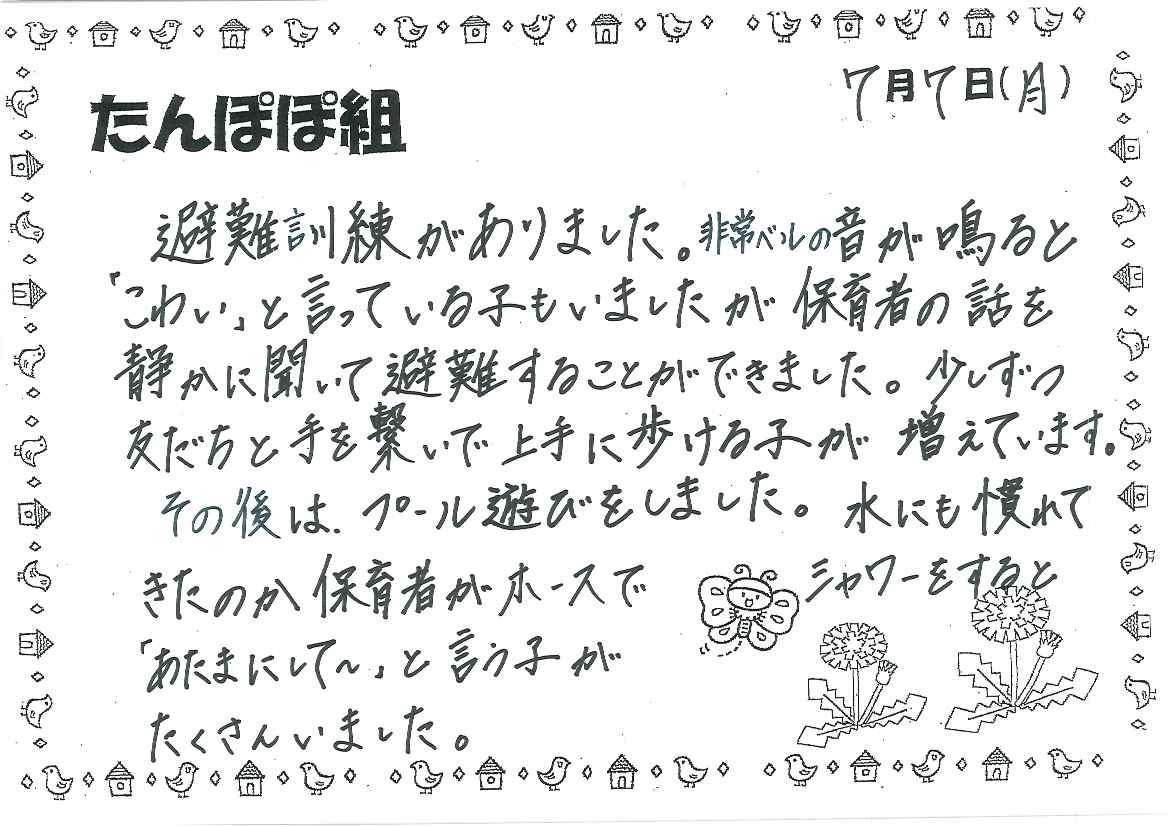 7月7日(月)
たんぽぽ組
避難訓練がありました。非常ベルの音が鳴ると
「こわい」と言っている子もいましたが保育者の話を
静かに聞いて避難することができました。少しずつ
友だちと手を繋いで上手に歩ける子が増えています。
その後は、プール遊びをしました。水にも慣れて
きたのか保育者がホースでシャワーをすると
「あたまにして～」と言う子が
たくさんいました。